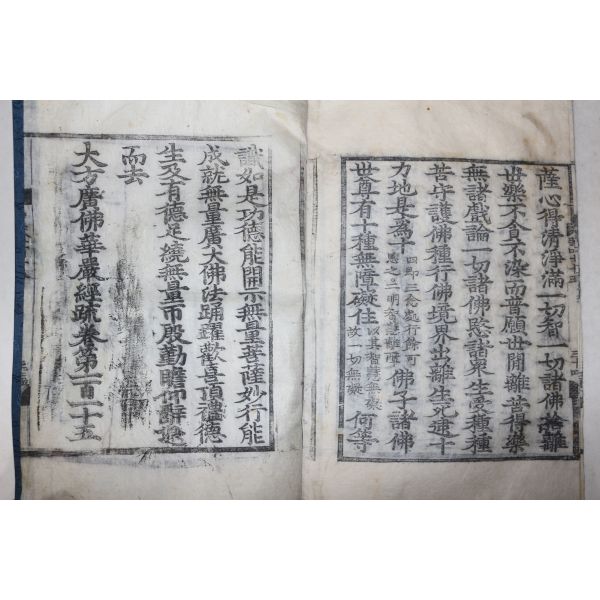 薩心得清淨滿一切智一切諸佛捨離
世樂不貪不染而普願世間離苦得樂
無諸戲論一切諸佛愍諸衆生受種種
苦守護佛種行佛境界出離生死逮十
力地是為十 四即三念處行餘可 思之三明智慧離障 佛子諸佛
世尊有十種無障礙住 以其智慧無礙 故一切無礙 何等
識如是功德能開示無量菩薩妙行能
成就無量廣大佛法踊躍歡喜頂禮德
生及有德足繞無量帀殷勤瞻仰辭退
而去
大方廣佛華嚴經疏卷第一百二十五